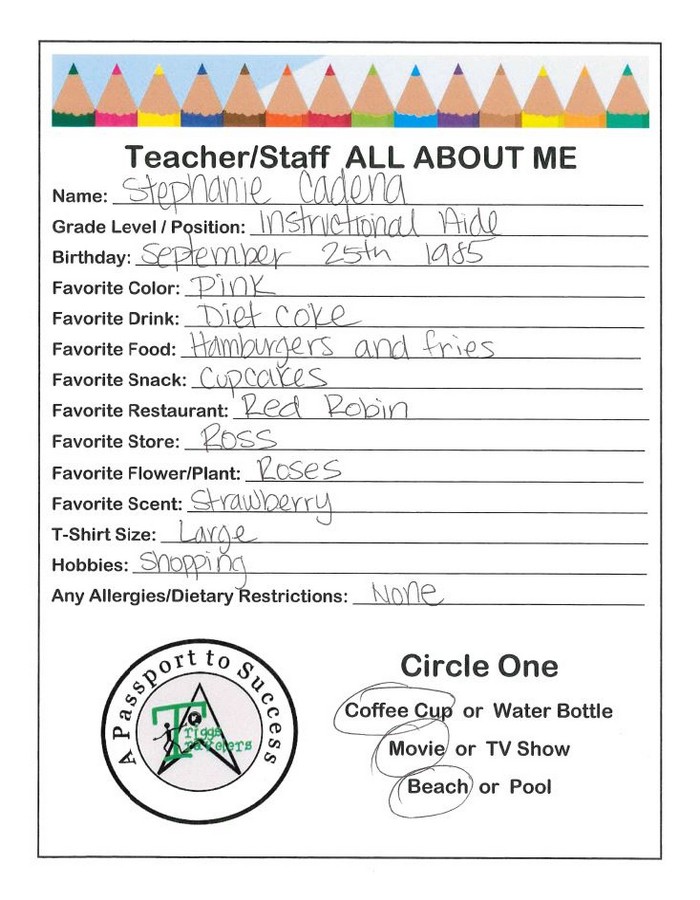 Teacher/Staff ALL ABOUT ME
Name: Stephanie Cadena
Grade Level / Position: Instructional Aide
Birthday: September 25th 1985
Favorite Color: Pink
Favorite Drink: Diet Coke
Favorite Food: Hamburgers and fries
Favorite Snack: Cupcakes
Favorite Restaurant: Red Robin
Favorite Store: Ross
Favorite Flower/Plant: Roses
Favorite Scent: Strawberry
T-Shirt Size: Large
Hobbies: Shopping
Any Allergies/Dietary Restrictions: None
A Passport to Success
Triggs
Travelers
Circle One
Coffee Cup or Water Bottle
Movie or TV Show
Beach or Pool